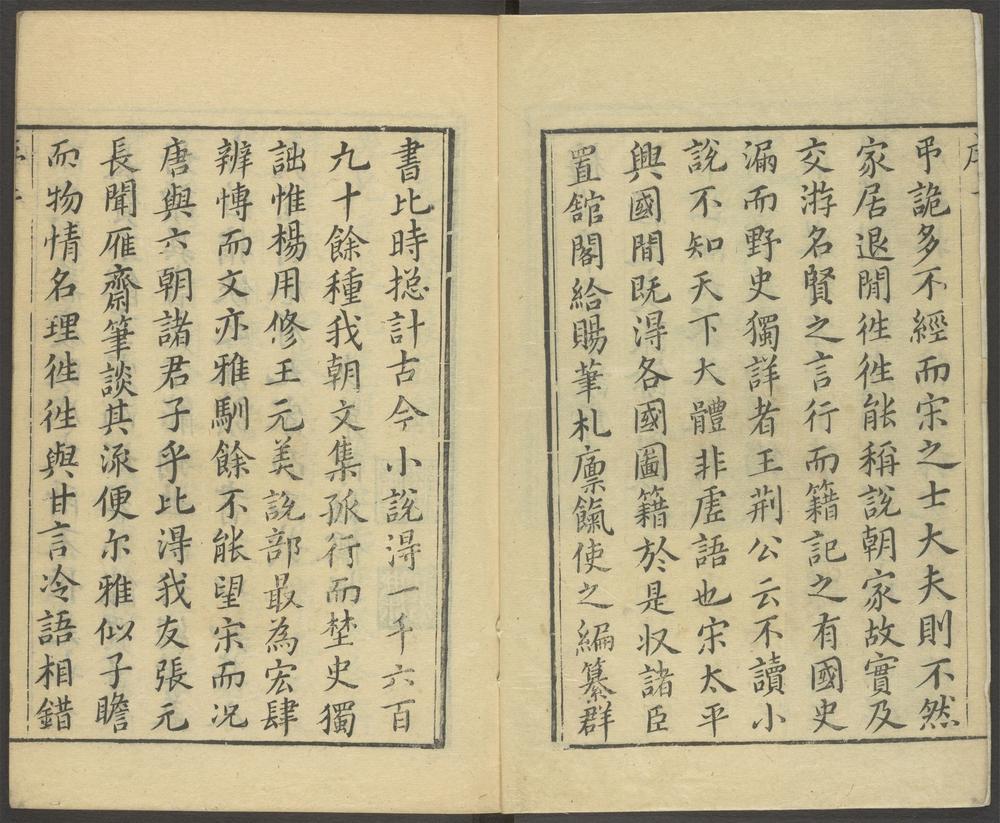 弔詭多不經而宋之士大夫則不然
家居退閒徃徃能稱說朝家故實及
交游名賢之言行而籍記之有國史
漏而野史獨詳者王荆公云不讀小
說不知天下大體非虛語也宋太平
興國間既淂各國圖籍於是収諸臣
置舘閣給賜筆札廪餼使之編纂群
書比時捴計古今小說淂一千六百
九十餘種我朝文集孤行而埜史獨
詘惟楊用修王元美說部最為宏肆
辨慱而文亦雅馴餘不能望宋而况
唐與六朝諸君子乎比淂我友張元
長聞雁齋筆談其泒便尔雅似子瞻
而物情名理徃徃與甘言冷語相錯